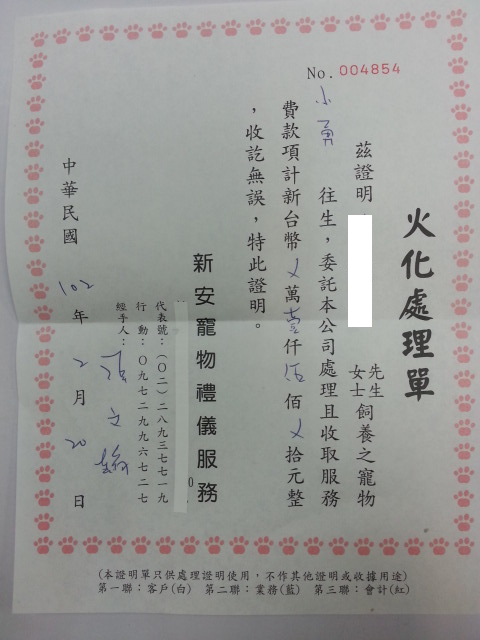 No. 004854
火化處理單
茲證明 先生女士飼養之寵物
小勇 往生，委託本公司處理且收取服務
費款項計新台幣 ㄨ 萬 壹 仟 伍 佰 ㄨ 拾元整
，收訖無誤，特此證明。
新安寵物禮儀服務
代表號：（０２）２８９３７７１９
行 動：０９７２９９６７２７
經手人：
中華民國 102 年 2 月 20 日
(本證明單只供處理證明使用，不作其他證明或收據用途)
第一聯：客戶(白) 第二聯：業務(藍) 第三聯：會計(紅)